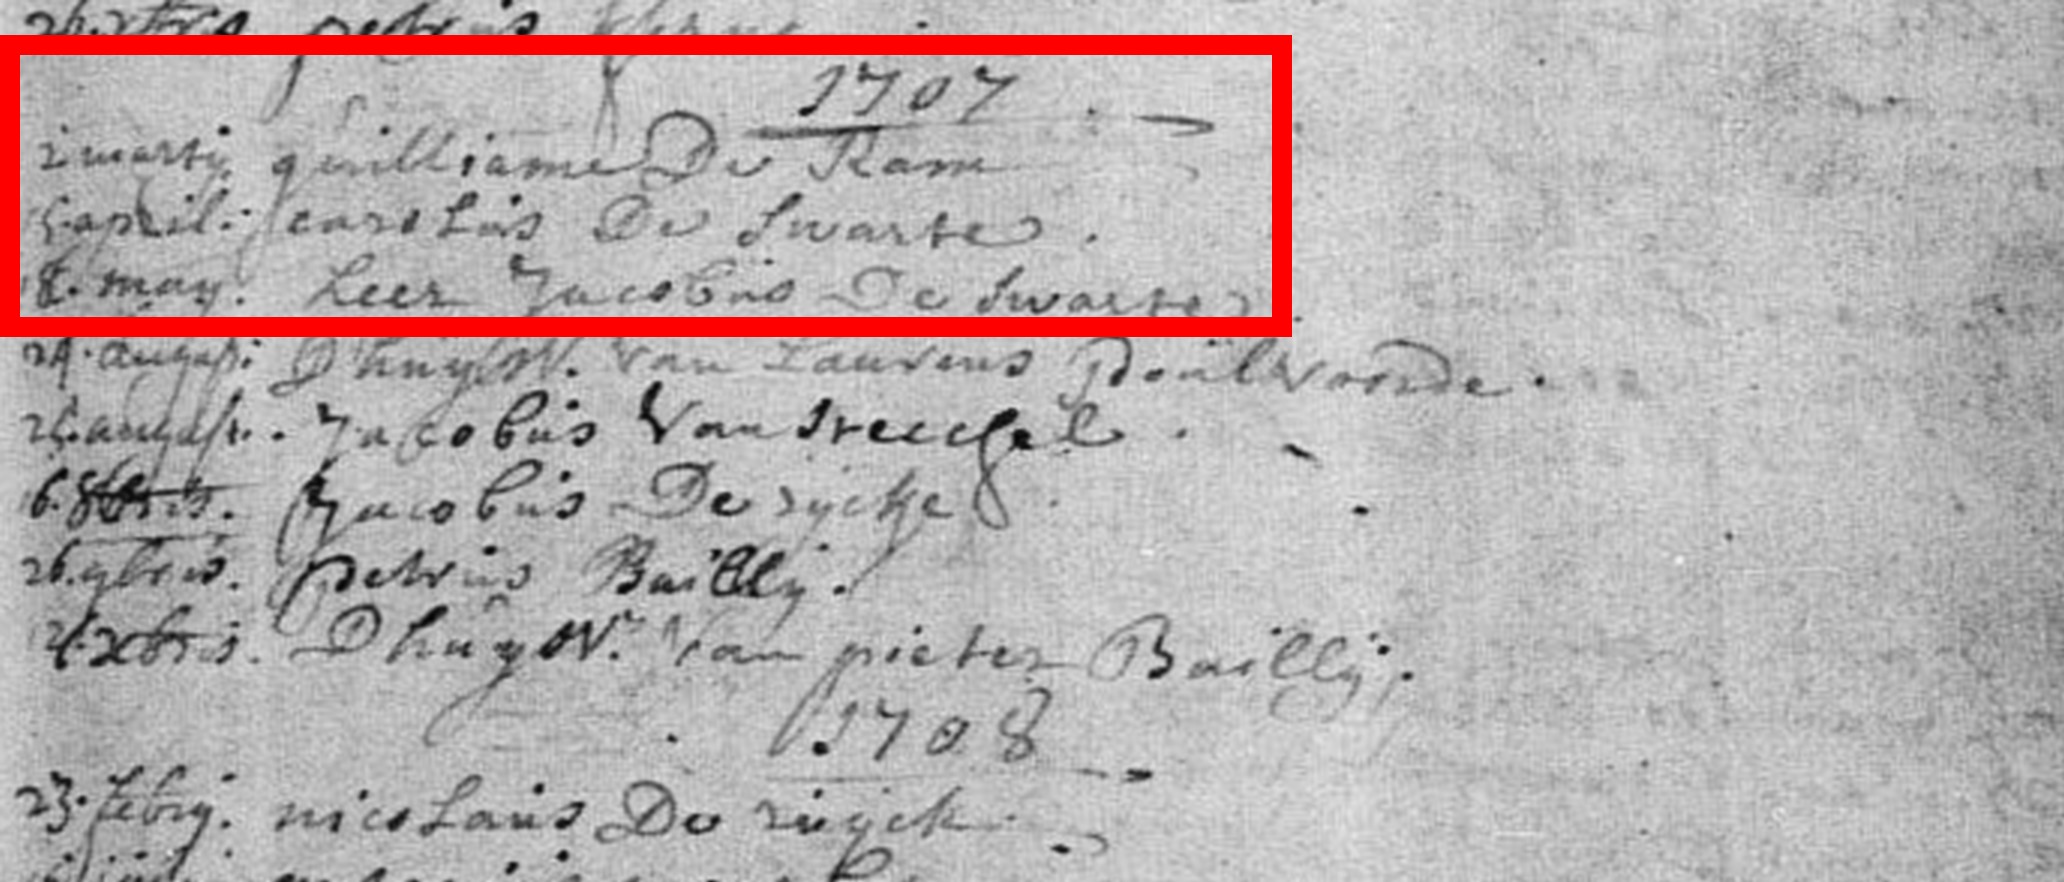 petrus
1707
2 marty guilliame De Ram
5 april: carolus De Swarte.
18. may. heer Jacobus De Swarte
24. augusti Dhuysv. van Laurens Poulvoorde.
25. augusti. Jacobus Van
16. 8bris. Jacobus De rycke
26. 9bris. petrus Bailly.
xbris. Dhuysv. van pieter Bailly.
1708
23. febry. nicolaus De ruyck